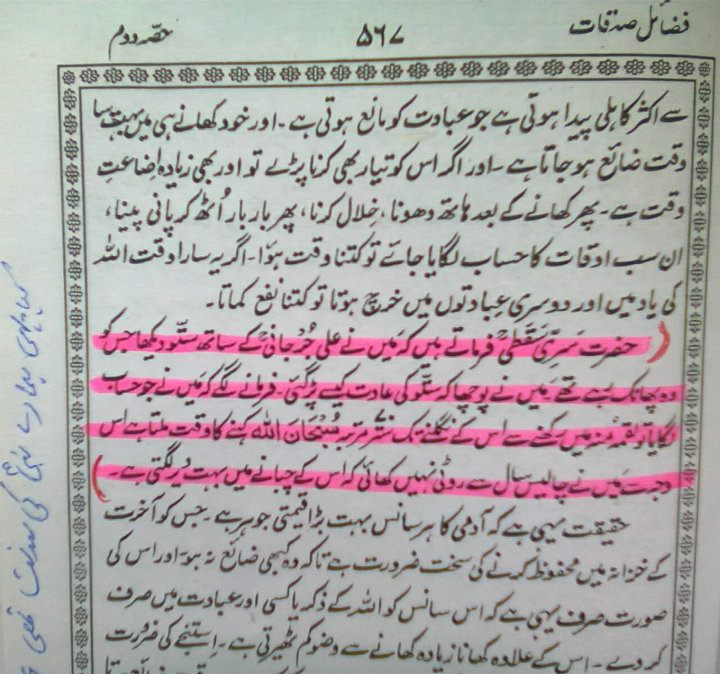 فضائل صدقات
۵۶۷
حصّہ دوم
سے اکثر کاہلی پیدا ہوتی ہے جو عبادت کو مانع ہوتی ہے۔ اور خود کھانے ہی میں بہت سا
وقت ضائع ہو جاتا ہے۔ اور اگر اس کو تیار بھی کرنا پڑے تو اور بھی زیادہ اضاعتِ
وقت ہے۔ پھر کھانے کے بعد ہاتھ دھونا، خِلال کرنا، پھر بار بار اُٹھ کر پانی پینا،
ان سب اوقات کا حساب لگایا جائے تو کتنا وقت ہوا۔ اگر یہ سارا وقت اللہ
کی یاد میں اور دوسری عبادتوں میں خرچ ہوتا تو کتنا نفع کماتا۔
(حضرت سَرِی سَقَطیؒ فرماتے ہیں کہ میں نے علی جُرجانیؒ کے ساتھ ستّو دیکھا جس کو
وہ پھانک رہے تھے۔ میں نے پوچھا کہ ستّو کی عادت کیسے پڑ گئی۔ فرمانے لگے کہ میں نے جو حساب
لگایا تو لقمہ منہ میں رکھنے سے اس کے نگلنے تک ستّر مرتبہ سُبْحَانَ اللہ کہنے کا وقت ملتا ہے اس
وجہ سے میں نے چالیس سال سے روٹی نہیں کھائی کہ اس کے چبانے میں بہت دیر لگتی ہے۔)
حقیقت یہی ہے کہ آدمی کا ہر سانس بہت بڑا قیمتی جوہر ہے۔ جس کو آخرت
کے خزانہ میں محفوظ کرنے کی سخت ضرورت ہے تاکہ وہ کبھی ضائع نہ ہو اور اس کی
صورت صرف یہی ہے کہ اس سانس کو اللہ کے ذکر یا کسی اور عبادت میں صرف
کر دے۔ اس کے علاوہ کھانا زیادہ کھانے سے وضو کم ٹھیرتی ہے۔ اِستنجے کی ضرورت